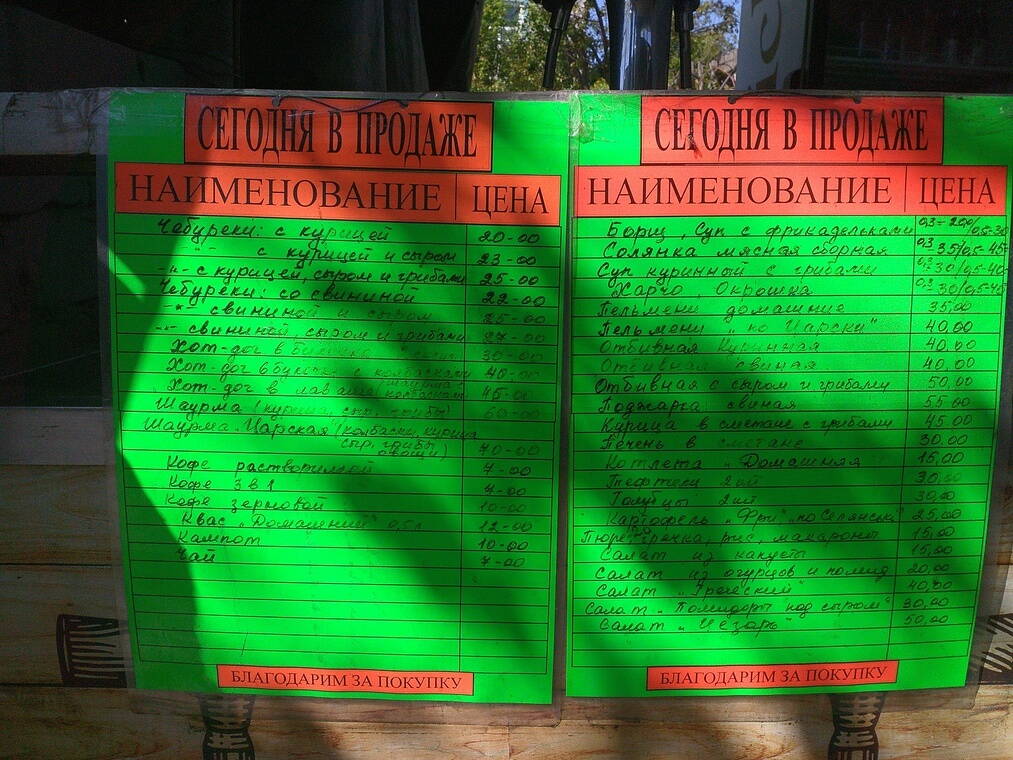 СЕГОДНЯ В ПРОДАЖЕ
НАИМЕНОВАНИЕ ЦЕНА
Чебуреки: с курицей 20-00
-"- с курицей и сыром 23-00
-"- с курицей, сыром и грибами 25-00
Чебуреки: со свининой 22-00
-"- свининой и сыром 25-00
-"- свининой, сыром и грибами 27-00
Хот-дог в булочке 30-00
Хот-дог в булочке с колбасками 40-00
Хот-дог в лаваше 45-00
Шаурма (курица, сыр, грибы) 60-00
Шаурма Царская (колбаски, курица
сыр, грибы, овощи) 70-00
Кофе растворимый 7-00
Кофе 3 в 1 7-00
Кофе зерновой 10-00
Квас "Домашний" 0,5л 12-00
Кампот 10-00
Чай 7-00
БЛАГОДАРИМ ЗА ПОКУПКУ
СЕГОДНЯ В ПРОДАЖЕ
НАИМЕНОВАНИЕ ЦЕНА
Борщ, Суп с фрикадельками 0,3-20/0,5-30
Солянка мясная сборная 0,3 35/0,5-45-
Суп куринный с грибами 0,3-30/0,5-40-
Харчо, Окрошка 0,3-30/0,5-45
Пельмени домашние 35,00
Пельмени "по Царски" 40,00
Отбивная Куринная 40,00
Отбивная свиная 40,00
Отбивная с сыром и грибами 50,00
Поджарка свиная 55.00
Курица в сметане с грибами 45.00
Печень в сметане 30.00
Котлета "Домашняя 15,00
Тефтели 2шт 30,00
Голубцы 2шт 30,00
Картофель "Фри" "по Селянски" 25,00
Пюре, гречка, рис, макароны 15,00
Салат из капусты 15,00
Салат из огурцов и помид 20,00
Салат "Греческий" 40,00
Салат "Помидоры под сыром" 30,00
Салат "Цезарь" 50,00
БЛАГОДАРИМ ЗА ПОКУПКУ